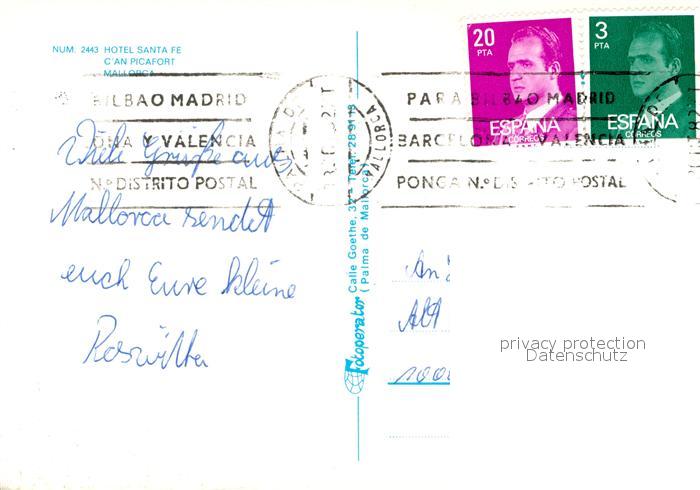 NUM. 2443 HOTEL SANTA FE
C'AN PICAFORT
MALLORCA
BILBAO MADRID
ONA Y VALENCIA
N.º DISTRITO POSTAL
Viele Grüße aus
Mallorca sendet
euch Eure kleine
Roswitha
Fotoperator Calle Goethe, Telef.
(Palma de Mallorca)
20
PTA
ESPAÑA
CORREOS
3
PTA
ESPAÑA
CORREOS
PARA BILBAO MADRID
BARCELONA Y VALENCIA
PONGA N.º DISTRITO POSTAL
MALLORCA
An
Alt
1000
privacy protection
Datenschutz